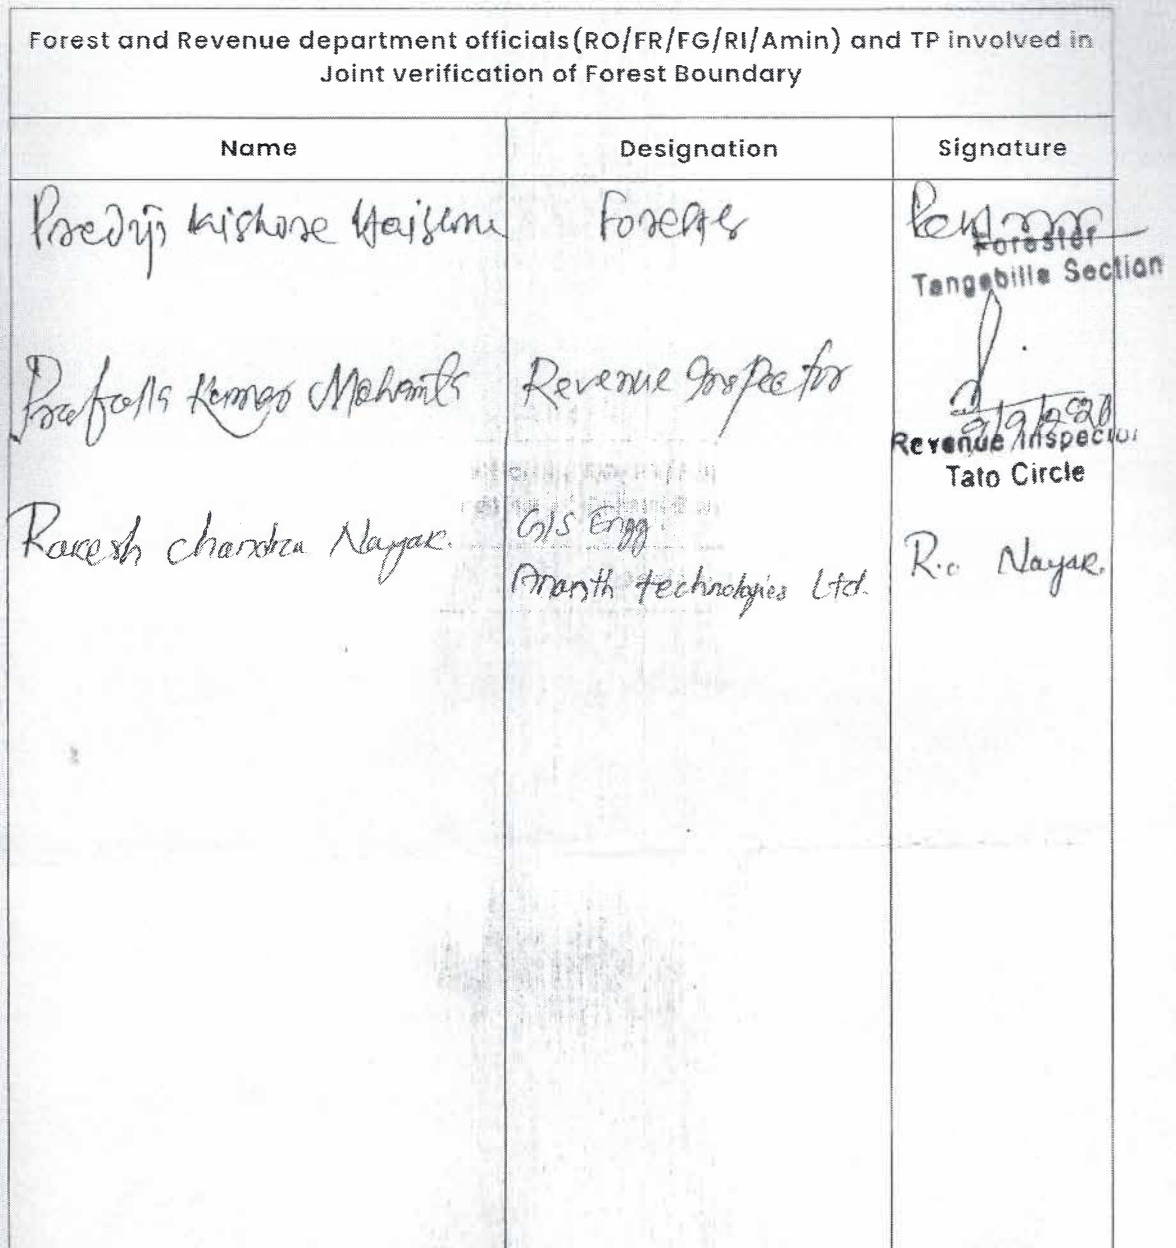 Forest and Revenue department officials(RO/FR/FG/RI/Amin) and TP involved in
Joint verification of Forest Boundary
Name Designation Signature
Kishore Forester
Forester
Tangabilla Section
Prafulla Kumar Mohanta Revenue Inspector
9/9/2020
Revenue Inspector
Tato Circle
Rakesh chandra Nayak. GIS Engg. R.c Nayak.
Ananth technologies Ltd.